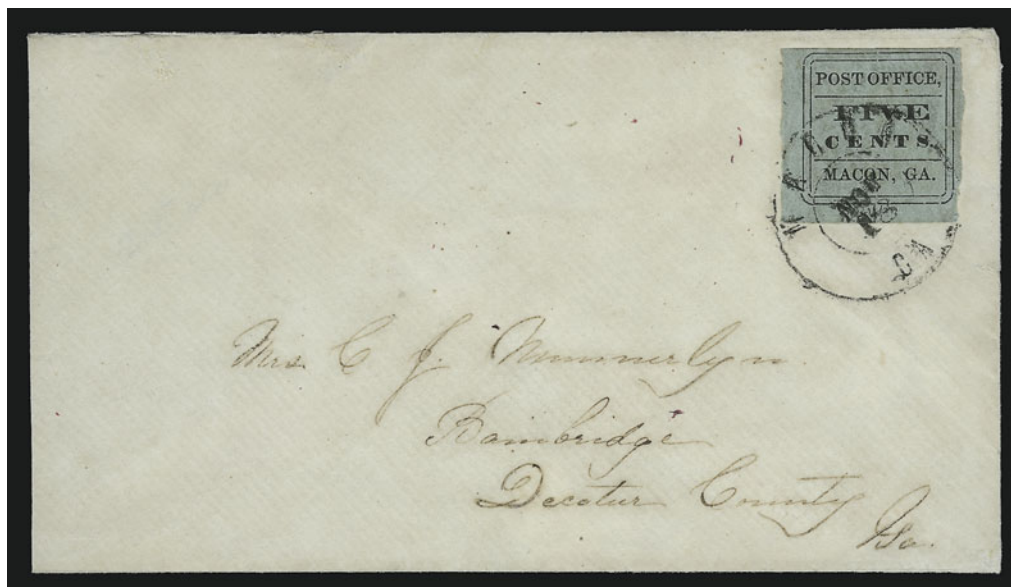 POST OFFICE,
FIVE
CENTS.
MACON, GA.
MACON
Nov
Mrs. C J. Nunnerlyn
Bainbridge
Decatur County
Ga.